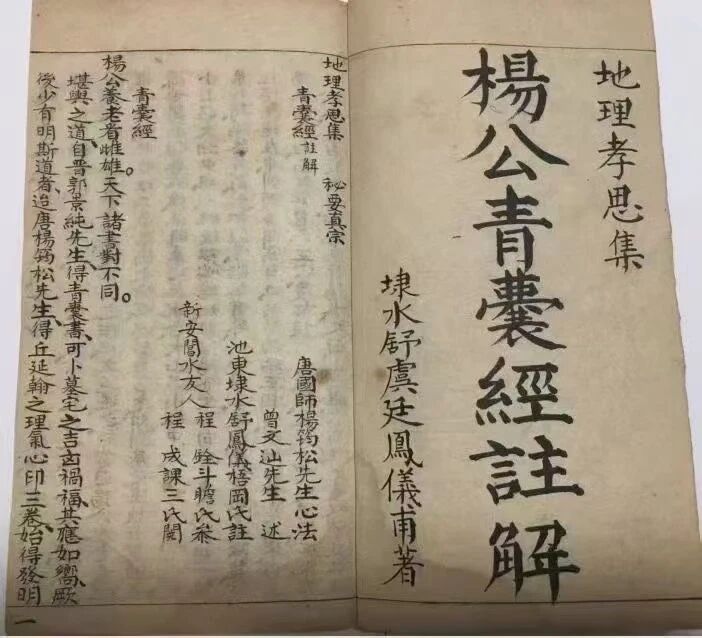 地理孝思集
楊公青囊經註解
埭水舒虞廷鳳儀甫著
地理孝思集 秘要真宗
青囊經註解
唐國師楊筠松先生心法
曾文辿先生 述
池東埭水舒鳳儀梧岡氏註
新安閶水友人
程 銓斗瞻氏叅
程 成課三氏閱
青囊經
楊公養老看雌雄。天下諸書對不同。
堪輿之道、自晋郭景純先生、得青囊書、可卜墓宅之吉凶禍福、其應如嚮、厥
後少有明斯道者、迨唐楊筠松先生、得丘延翰之理氣心印三卷、始得發明
一